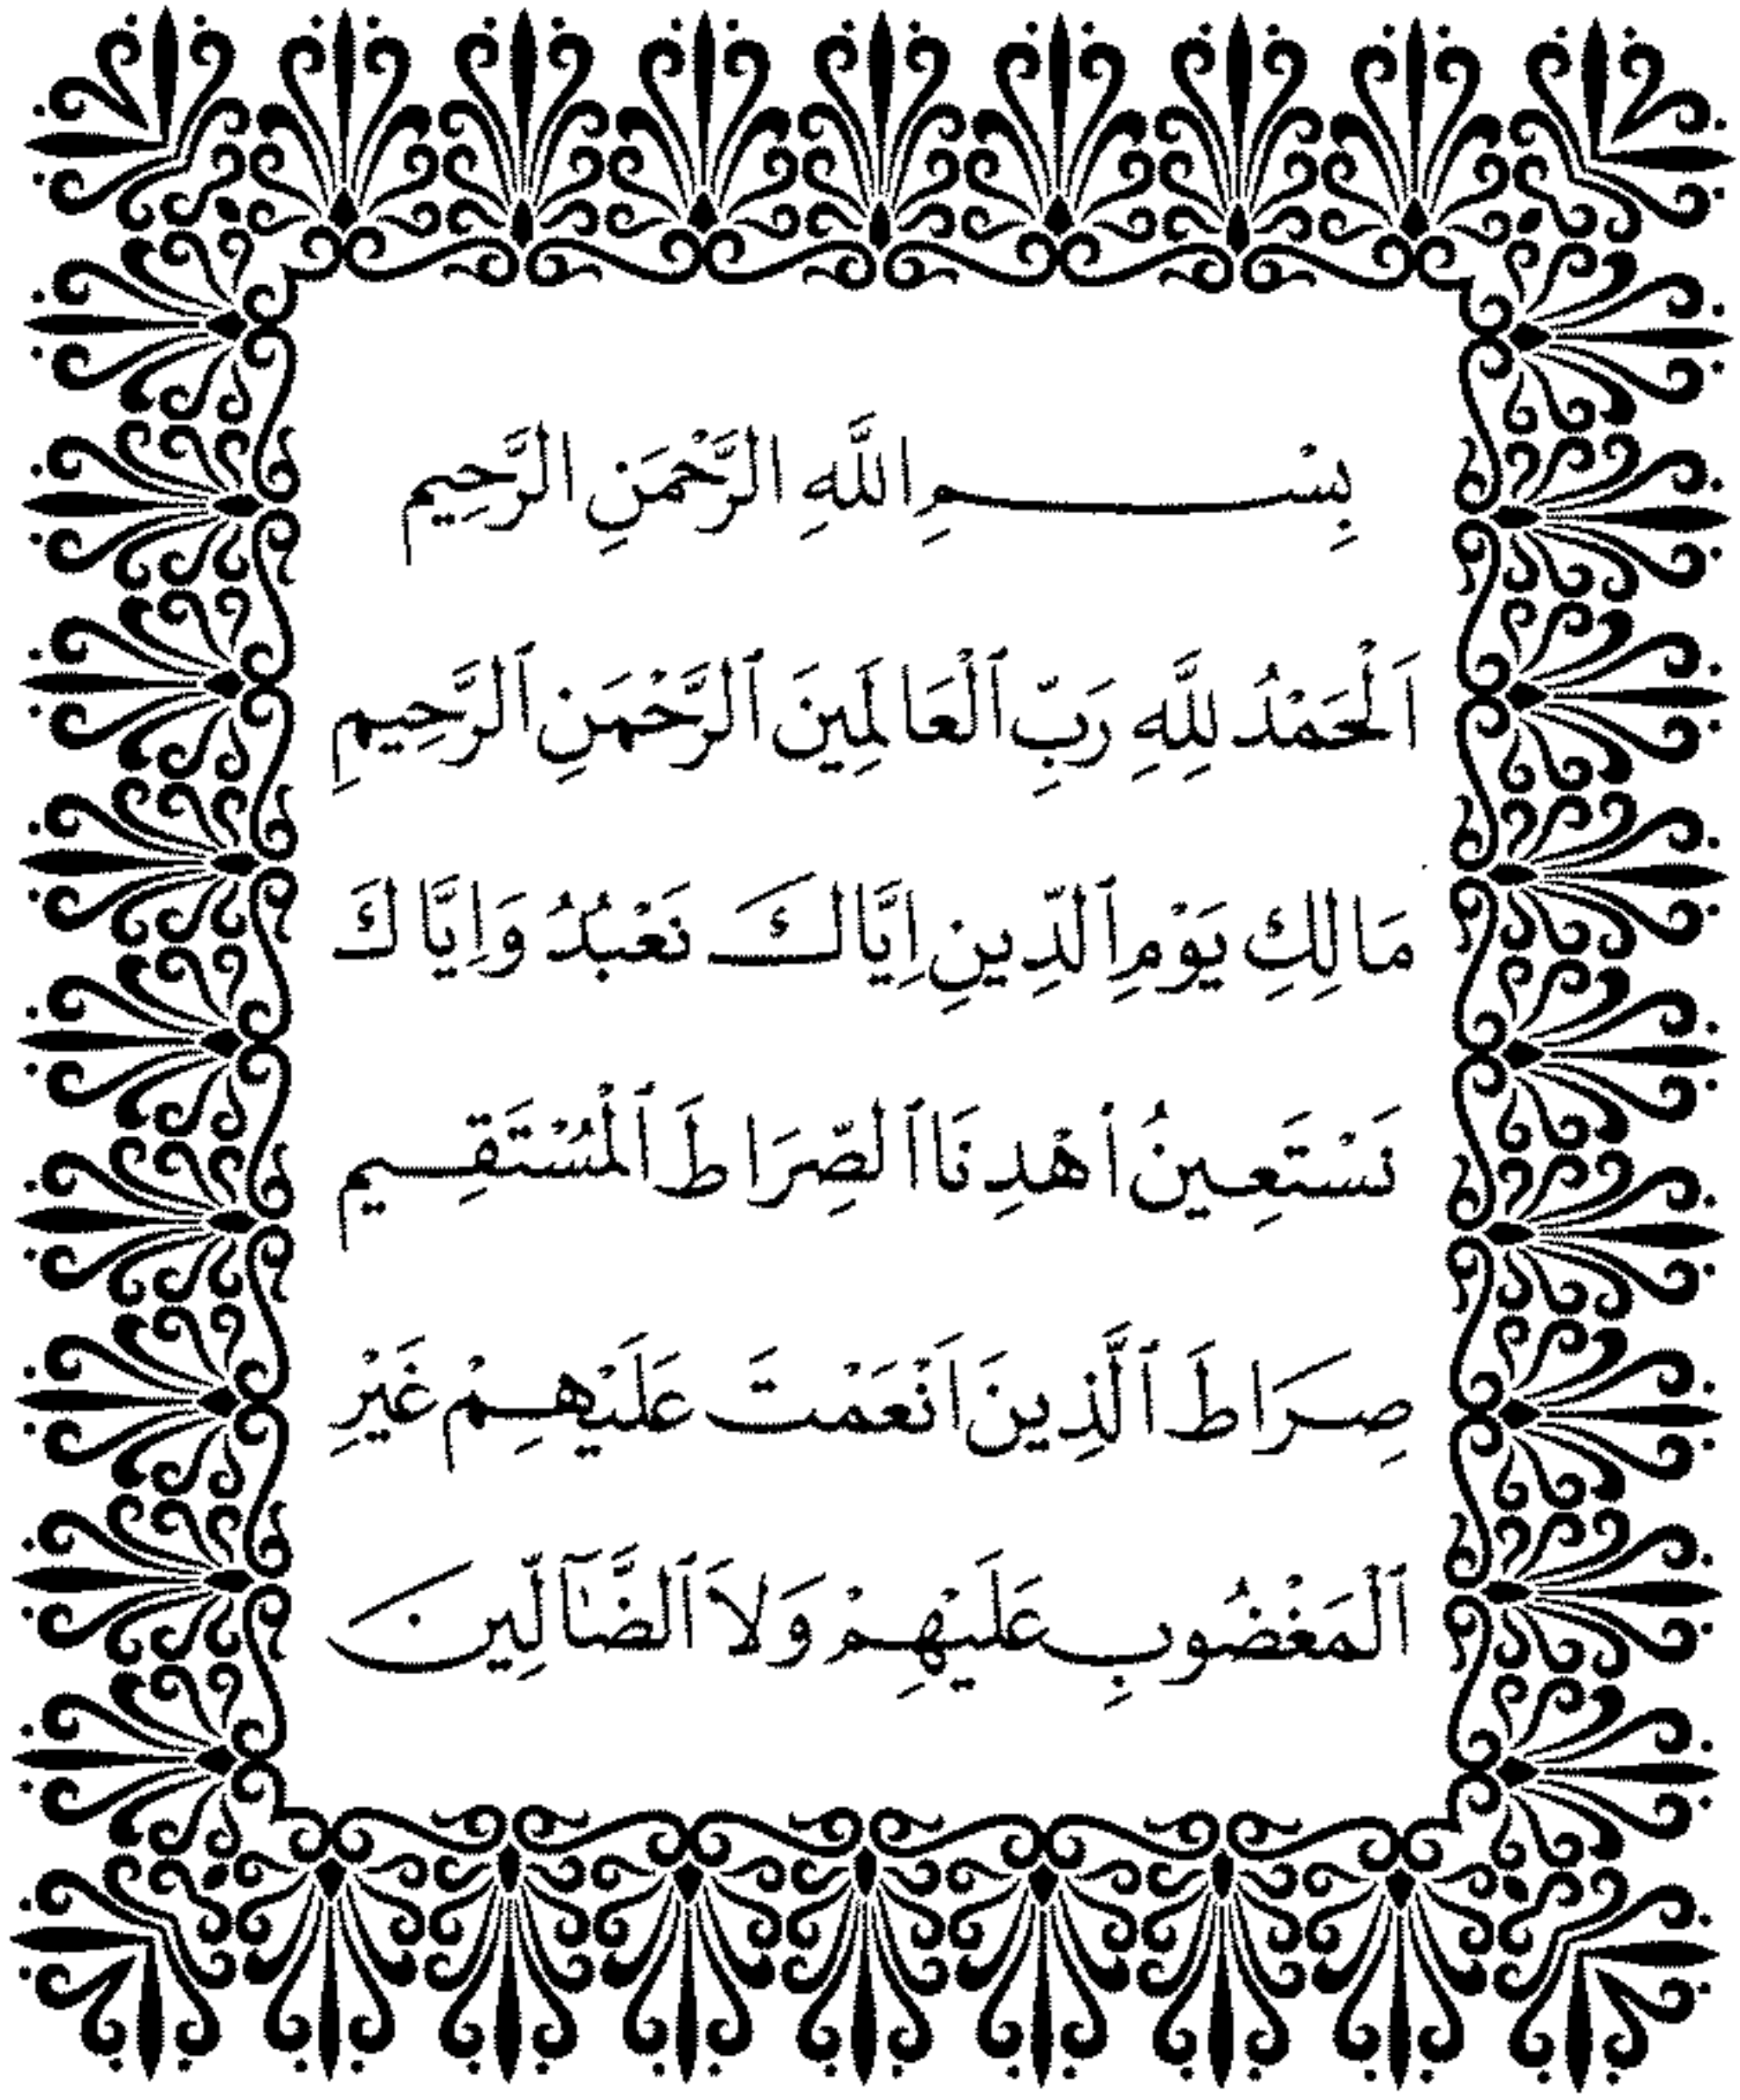 بِسْمِ اللَّهِ الرَّحْمَنِ الرَّحِيمِ
اَلْحَمْدُ لِلَّهِ رَبِّ ٱلْعَالَمِينَ ٱلرَّحْمَنِ ٱلرَّحِيمِ
مَالِكِ يَوْمِ ٱلدِّينِ اِيَّاكَ نَعْبُدُ وَاِيَّاكَ
نَسْتَعِينُ ٱهْدِنَا ٱلصِّرَاطَ ٱلْمُسْتَقِيمِ
صِرَاطَ ٱلَّذِينَ اَنْعَمْتَ عَلَيْهِمْ غَيْرِ
ٱلْمَغْضُوبِ عَلَيْهِمْ وَلاَ ٱلضَّآلِّينَ